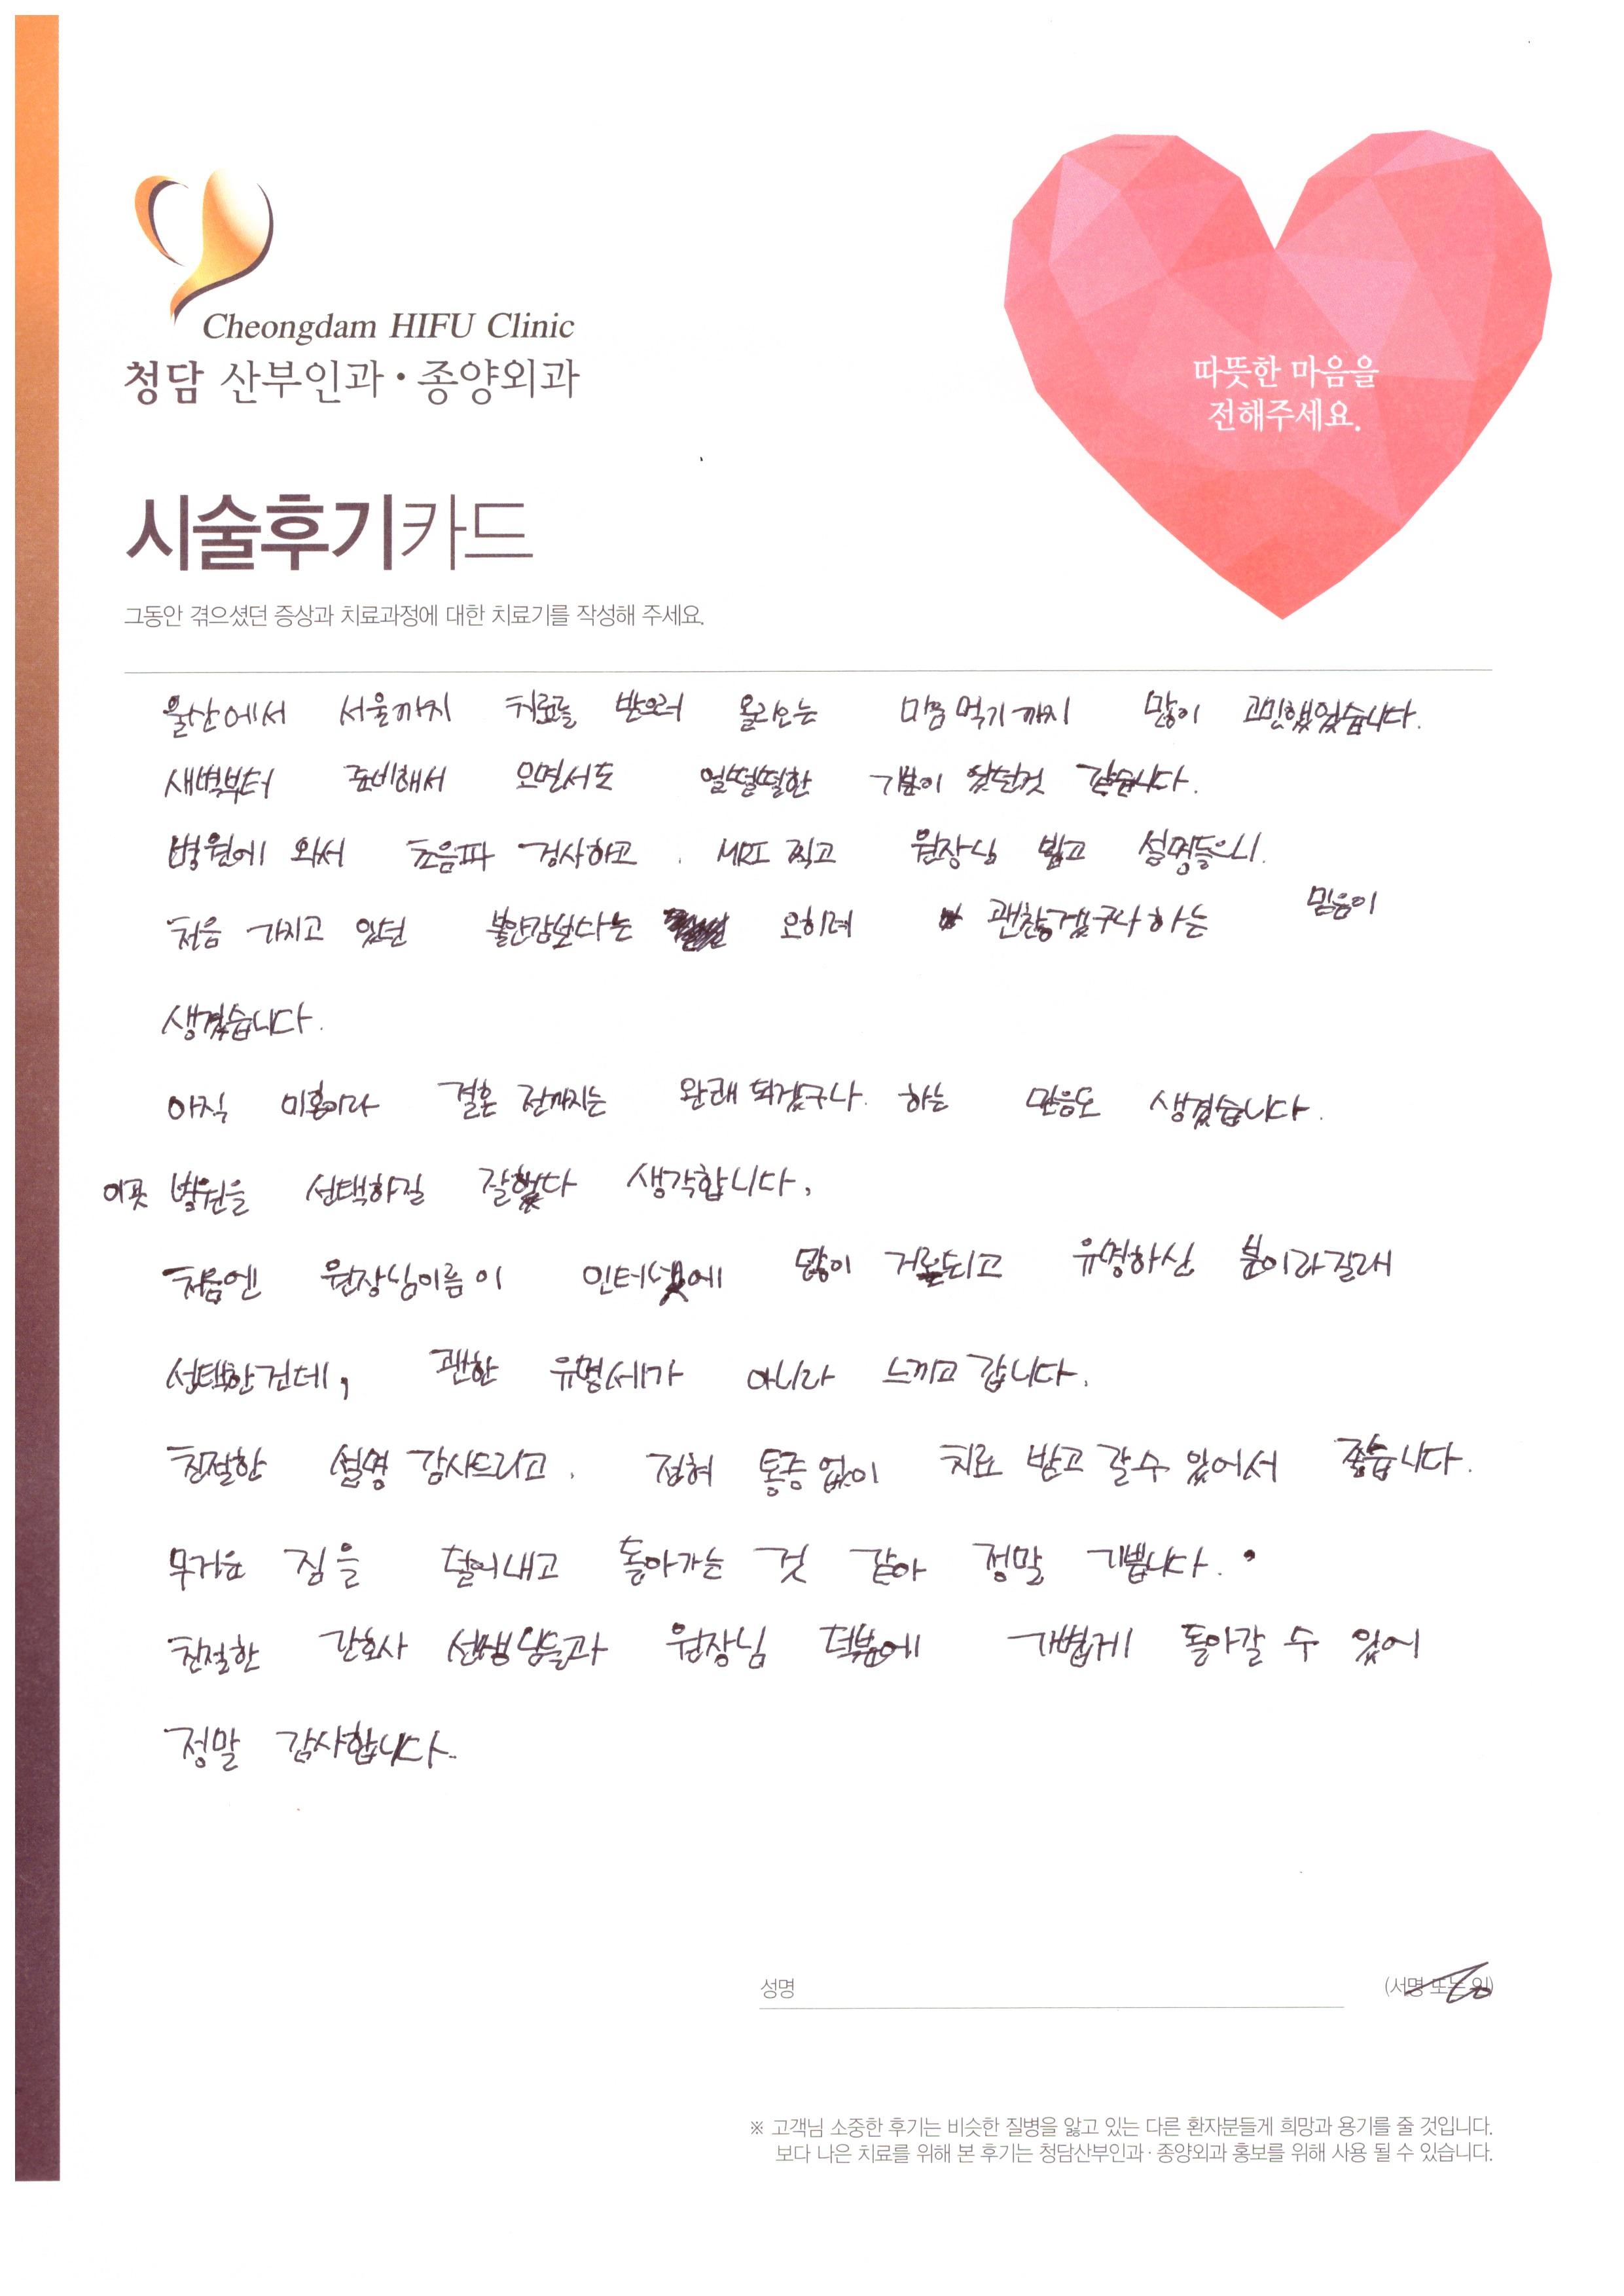 Cheongdam HIFU Clinic
청담 산부인과·종양외과
따뜻한 마음을
전해주세요.
시술후기카드
그동안 겪으셨던 증상과 치료과정에 대한 치료기를 작성해 주세요.
울산에서 서울까지 치료를 받으러 올라오는 마음 먹기까지 많이 고민했었습니다.
새벽부터 준비해서 오면서도 얼떨떨한 기분이 있던것 같습니다.
병원에 와서 초음파 검사하고. MRI 찍고 원장님 뵙고 설명들으니.
처음 가지고 있던 불안감보다는 오히려 괜찮겠구나하는 믿음이
생겼습니다.
아직 미혼이라 결혼 전까지는 완쾌 되겠구나. 하는 믿음도 생겼습니다.
이곳 병원을 선택하길 잘했다 생각합니다.
처음엔 원장님이름이 인터넷에 많이 거론되고 유명하신 분이라길래
선택한건데, 괜한 유명세가 아니라 느끼고 갑니다.
친절한 설명 감사드리고. 전혀 통증 없이 치료 받고 갈 수 있어서 좋습니다.
무거운 짐을 덜어내고 돌아가는 것 같아 정말 기쁩니다.
친절한 간호사 선생님들과 원장님 덕분에 가볍게 돌아갈 수 있어
정말 감사합니다..
성명 (서명 또는 인)
※ 고객님 소중한 후기는 비슷한 질병을 앓고 있는 다른 환자분들게 희망과 용기를 줄 것입니다.
보다 나은 치료를 위해 본 후기는 청담산부인과·종양외과 홍보를 위해 사용 될 수 있습니다.